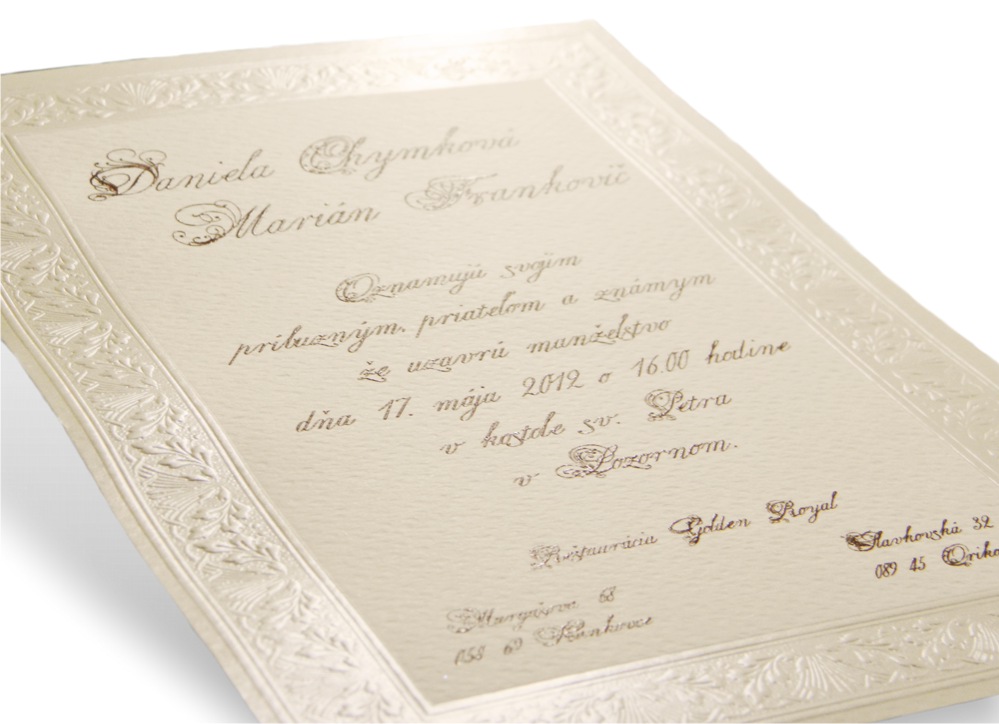 Daniela Chymková
Marián Frankovič
Oznamujú svojim
príbuzným, priateľom a známym
že uzavrú manželstvo
dňa 17. mája 2012 o 16.00 hodine
v kostole sv. Petra
v Lozornom.
Reštaurácia Golden Royal
Slavkovská 32
089 45
68
058 69